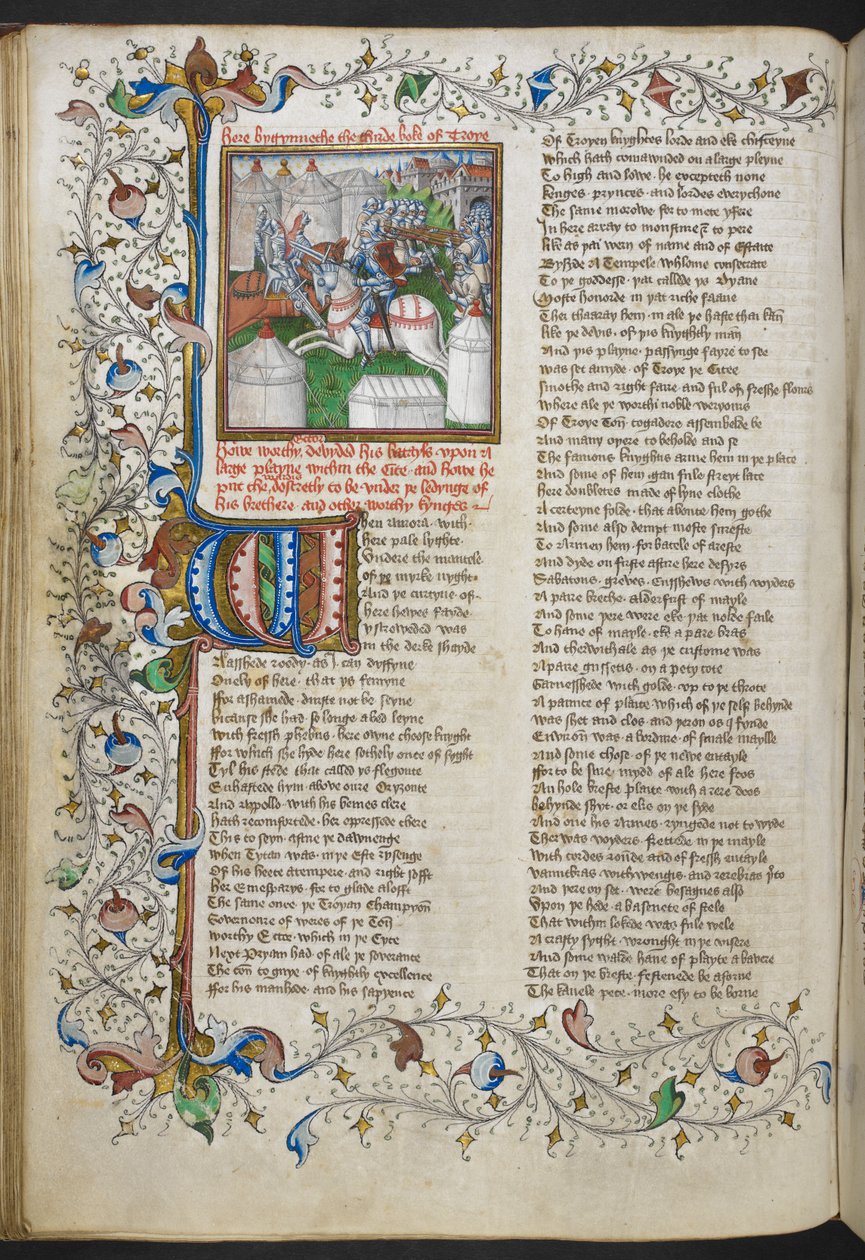 Here bygynneth the thride boke of Troye
Ector
Howe worthy devyded his batayls upon a
large playne within the Cite and howe he
put the discretly to be under þe ledynge of
his brethere and other worthy kynges
When Aurora with
here pale lyghte
Undere the mantele
of þe myrke nyght
And þe curtyne of
here hewes fayde
yshroweded was
in the derke shayde
Wasshede roody as I can dyffyne
Onely of here that ys femyne
ffor ashamede durste not be seyne
bicause she had so longe abed leyne
With fressh phebus here owne choose knyght
ffor which she hyde here sothely oute of syght
Tyl his stede that called ys flegonte
Enhastede hym above oure Oryzonte
And appollo with his bemes clere
hath recomfortede her oppressede chere
This to seyn aftre þe dawenge
when Tytan was in þe Este rysenge
Of his heete atempere and right sofft
her Emesparye for to glade alofft
The same once þe Troyan Champyon
Governoure of weres of þe Ton
worthy Ector which in þe Cyte
Next Pryam had of ale þe soverante
The ton to guye of knyghtly excellence
ffor his manhede and his sapyence
Of Troyen knyghtes lorde and eke chifteyne
Which hath comawnded on a large pleyne
To high and lowe he excepteth none
kenges prynces and lordes everychone
The same morowe for to mete yfere
In here array to monstme to pere
like as þai wern of name and of Estaite
Bysyde a Tempele whilome consecrate
To þe goddesse þat callede ys Dyane
Moste honorde in þat riche faane
Ther tharray hem in ale þe haste thai kan
like þe devis of þis knyghtly man
And þis playne passynge fayre to see
was set amyde of Troye þe Citee
smothe and right faire and ful of fresshe floures
Where ale þe worthi noble weryours
Of Troye Ton togadere assembelde be
And many oþere to beholde and se
The famous knyghtis arme hem in þe place
And some of hem gan fule streyt lace
here doubletes made of lyne clothe
A certeyne folde that aboute hem gothe
And some also dempt moste sureste
To Armen hem for batele of areste
And dyde on firste aftre here desyrs
Sabatons greves Cusshewes with voyders
A paire breche alderfirst of mayle
And some þere were eke þat nolde faile
To have of mayle eke a pare bras
And therwithale as þe custome was
A paire gussetis on a pety cote
Garnesshede with golde up to þe throte
A paunce of plaite which of þe self behynde
was shet and clos and þeron as I fynde
Enyron was a bordure of smale maylle
And some chose of þe newe entayle
ffor to be sure mydd of ale here foos
An hole breste plaite with a rere doos
behynde shyt or elis on þe syde
And one his armes ryngede not to wyde
Ther was voyders frettede in þe mayle
With cordes rounde and of fressh entayle
vaumbras with wengis and rerebras þerto
And þere on set were besagues also
Upon þe hede a basenete of stele
That within lokede was fule wele
A crafty syght wrought in þe visere
And some walde have of playte a bavere
That on þe breste festenede be aforne
The kanele pece more esy to be borne